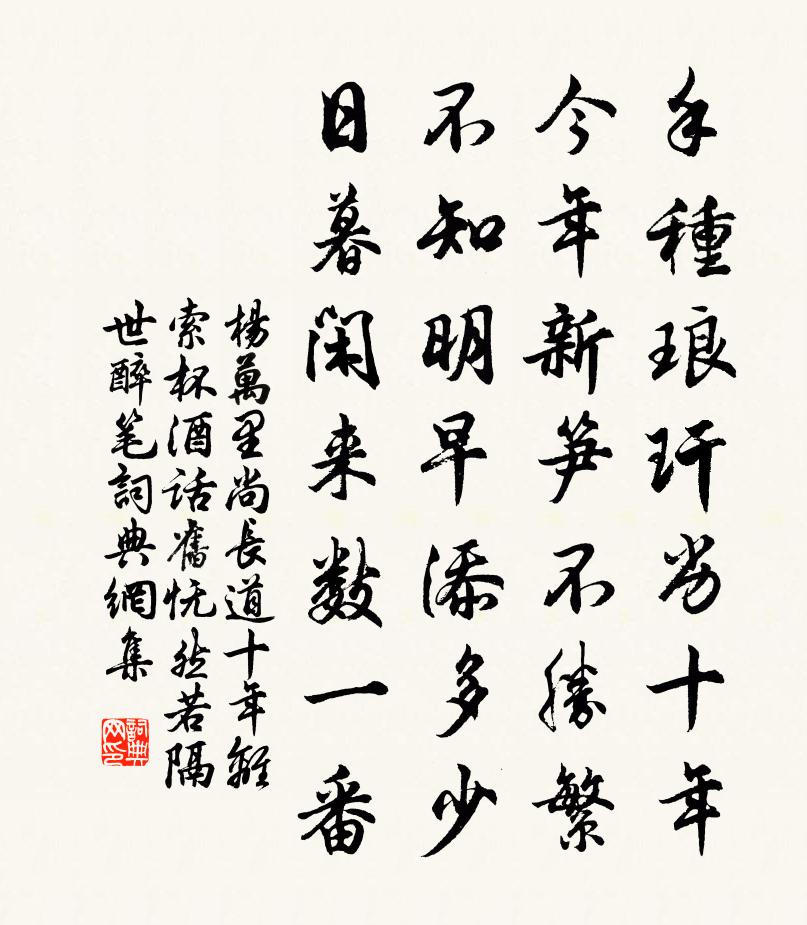 手種琅玕劣十年
今年新笋不勝繁
不知明早添多少
日暮閑来数一番
楊萬里尚長道十年離
索杯酒話舊怳然若隔
世醉笔詞典網集
詞典网印